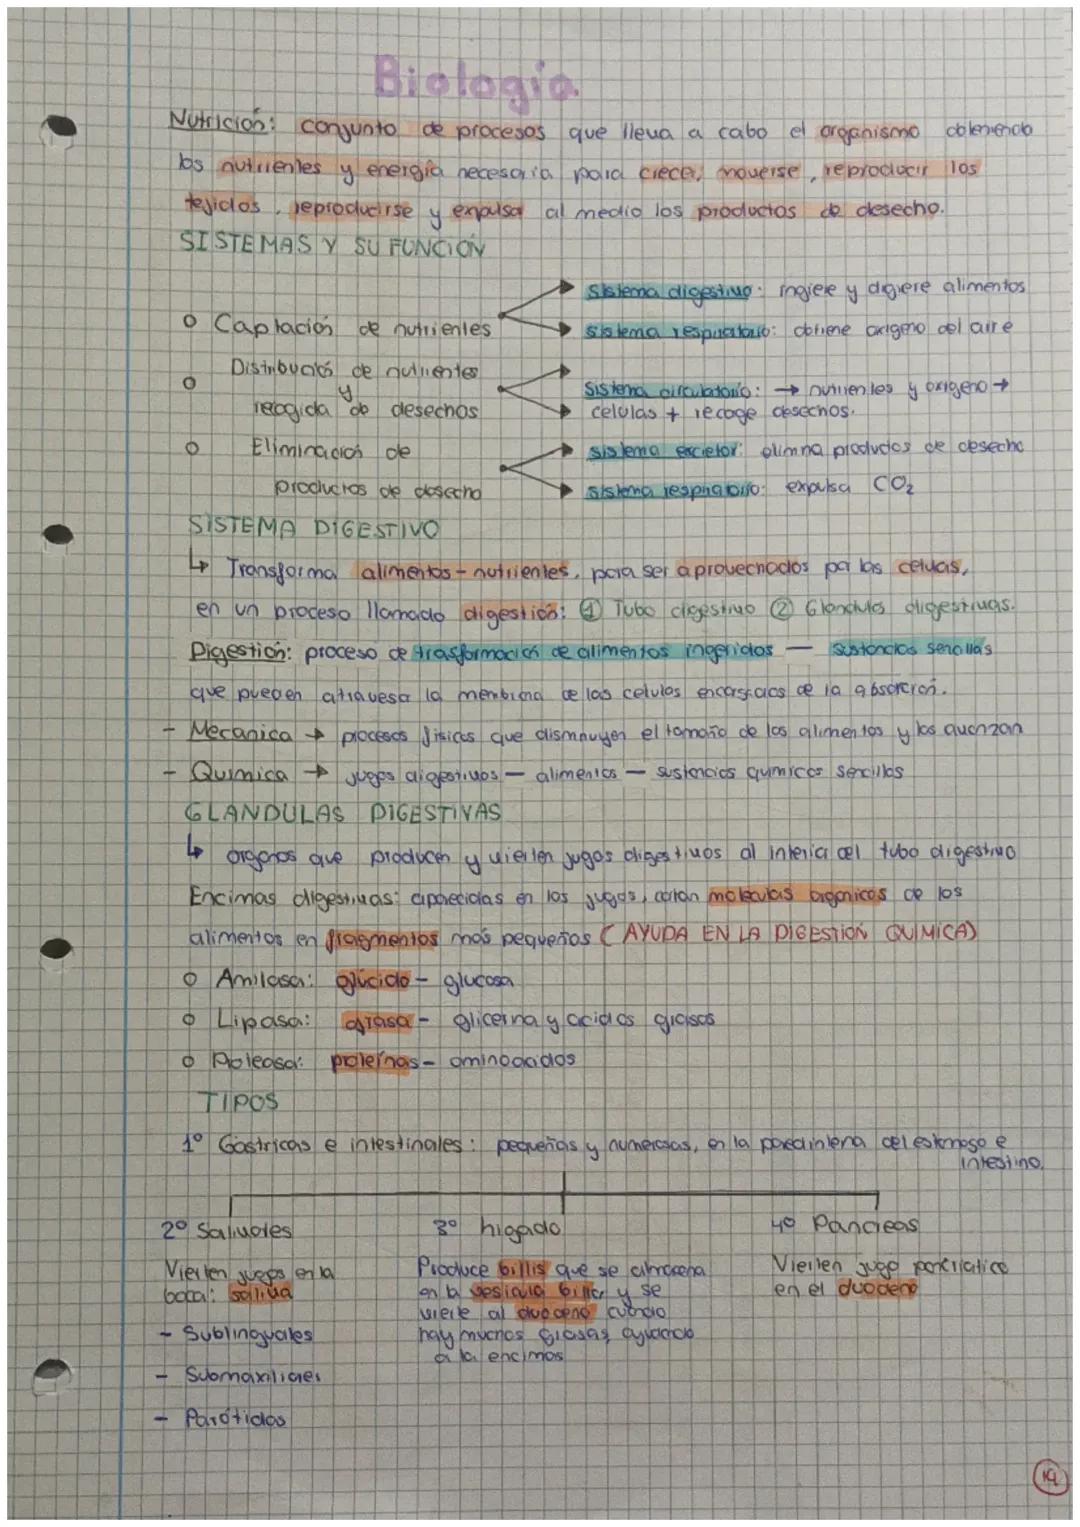 Biología
Nutrición: conjunto de procesos que lleva a cabo el organismo obteniendo
los nutrientes y energía necesaria para crecer, moverse, reproducir los
tejidos, reproducirse y expulsa al medio los productos de desecho.
SISTEMAS Y SU FUNCIÓN
Sistema digestivo: ingiere y digiere alimentos
o Captación de nutrientes
sistema respiratorio: obtiene oxigeno del aire
o Distribución de nutrientes
y
recogida de desechos
Sistema circulatorio: → nutrientes y oxigeno →
celulas + recoge desechos.
o Eliminación de
productos de desecho
sistema excretor: elimina productos de desecho
sistema respiratorio: expulsa CO2
SISTEMA DIGESTIVO
↳ Transforma alimentos - nutrientes, para ser aprovechados por las celulas,
en un proceso llamado digestión: ① Tubo digestivo ② Glandulas digestivas.
Digestión: proceso de trasformación de alimentos ingeridos — sustancias sencillas
que pueden atravesa la membrana de las celulas encargadas de la absorción.
- Mecanica → procesos físicos que disminuyen el tamaño de los alimentos y los avanzan
- Quimica → jugos digestivos — alimentos — sustancias quimicas sencillas
GLANDULAS DIGESTIVAS
↳ organos que producen y vierten jugos digestivos al interior del tubo digestivo
Encimas digestivas: aparecidas en los jugos, cortan moleculas organicas de los
alimentos en fragmentos mas pequeños (AYUDA EN LA DIGESTIÓN QUIMICA)
o Amilasa: glúcido - glucosa
o Lipasa: grasa - glicerina y acidos grasos
o Poleasa: proteínas - aminoacidos
TIPOS
1º Gastricas e intestinales: pequeñas y numerosas, en la pared interna del estomago e
intestino.
2º Salivales
Vierten jugos en la
boca: saliva
- Sublinguales
- Submaxilares
- Parótidas
3º hígado
Produce billis que se almacena
en la vesicula biliar y se
vierte al duodeno cuando
hay muchas grasas, ayudando
a la encimas
4º Pancreas
Vierten jugo pancreatico
en el duodeno